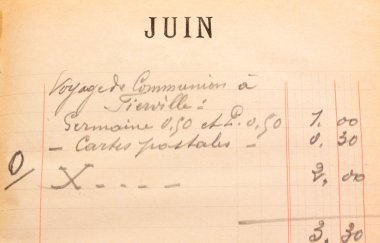 JUIN
Voyage de Communion à
Tierville :
Germaine 0,50 et P. 0,50 1. 00
- Cartes postales - 0. 30
0/ X - - - - 2. 00
3. 30